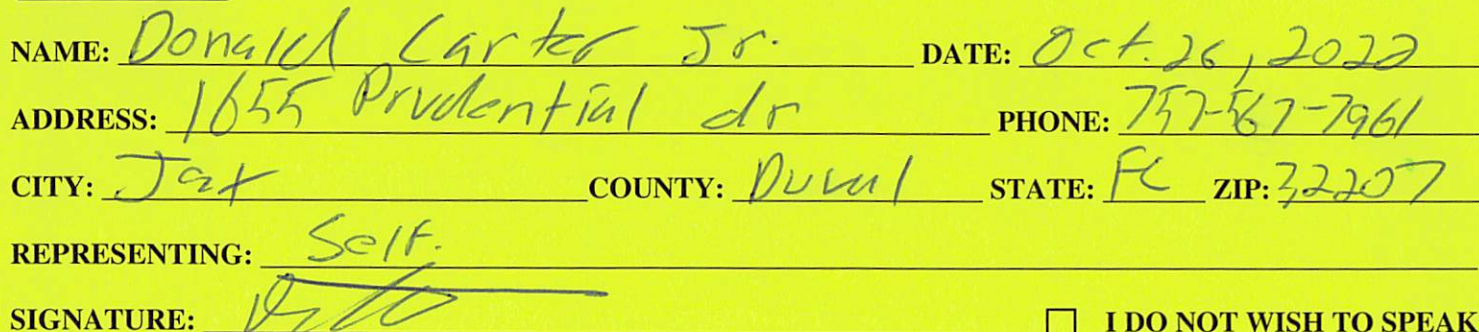 NAME: Donald Carter Jr. DATE: Oct. 26, 2022
ADDRESS: 1655 Prudential dr PHONE: 757-567-7961
CITY: Jax COUNTY: Duval STATE: FL ZIP: 32207
REPRESENTING: Self.
SIGNATURE: ☐ I DO NOT WISH TO SPEAK